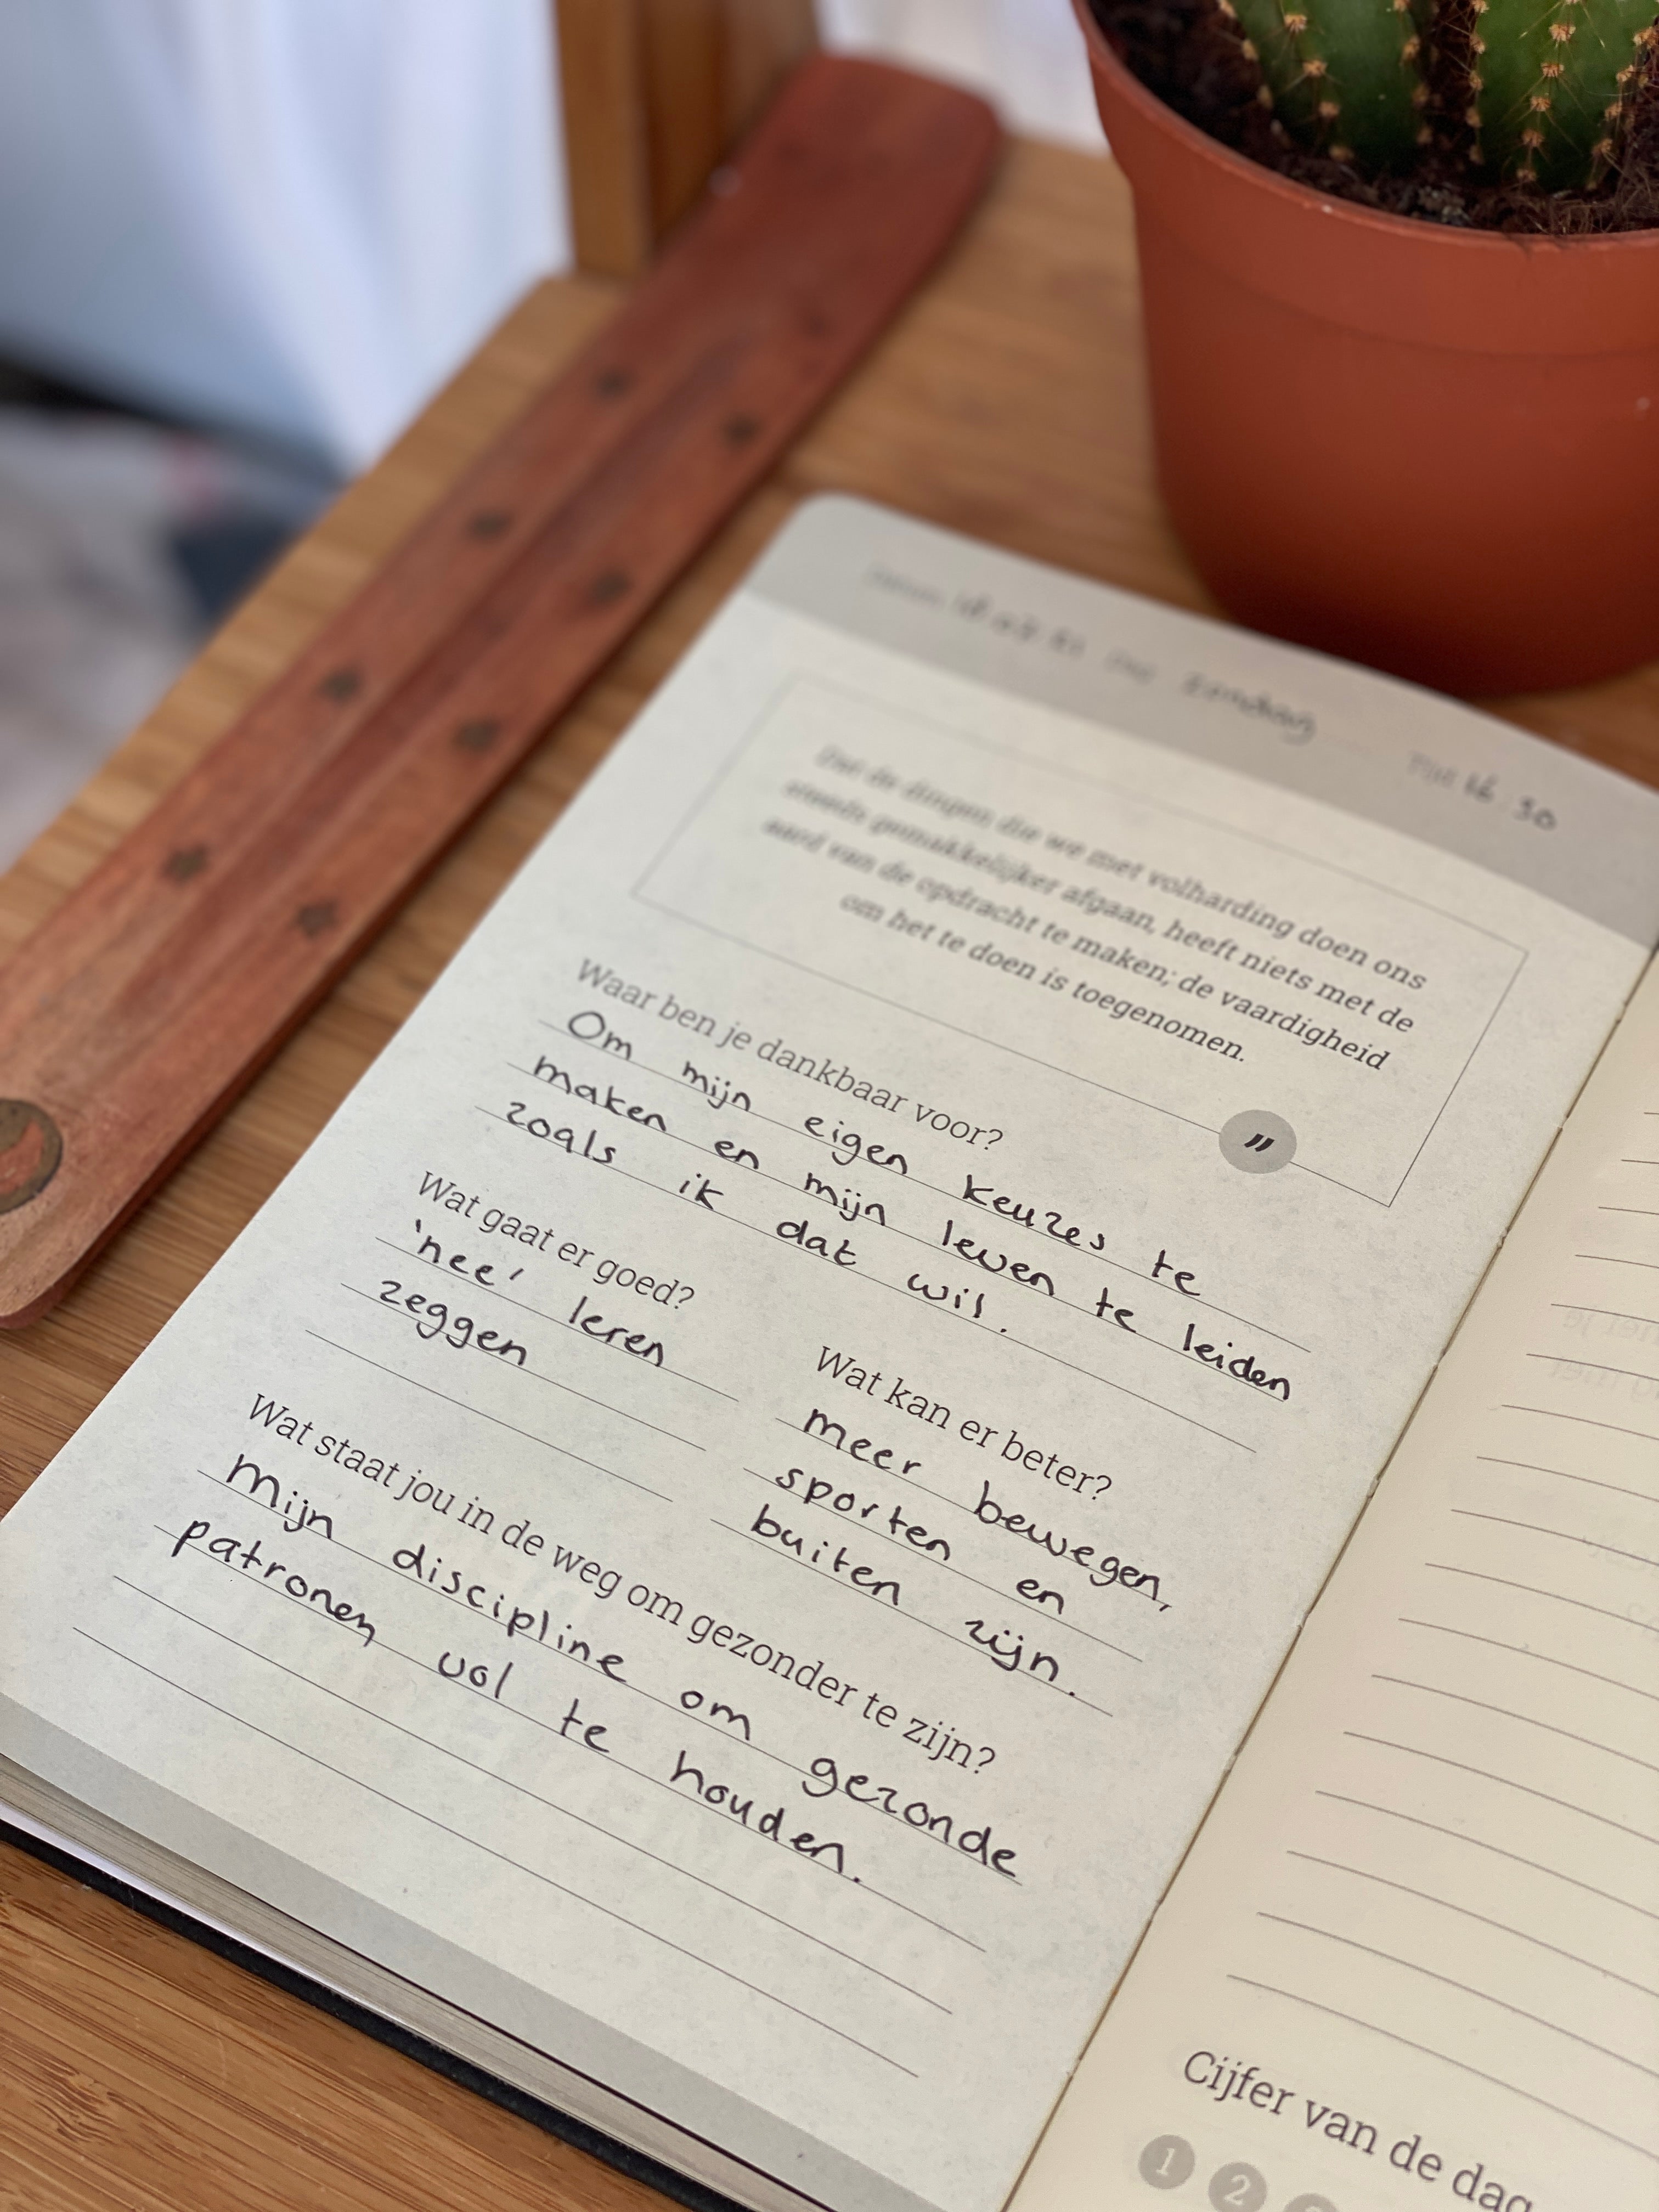 zondag Tijd 16 30
Dat de dingen die we met volharding doen ons
steeds gemakkelijker afgaan, heeft niets met de
aard van de opdracht te maken; de vaardigheid
om het te doen is toegenomen.
"
Waar ben je dankbaar voor?
Om mijn eigen keuzes te
maken en mijn leven te leiden
zoals ik dat wil.
Wat gaat er goed?
'nee' leren
zeggen
Wat kan er beter?
meer bewegen,
sporten en
buiten zijn.
Wat staat jou in de weg om gezonder te zijn?
Mijn discipline om gezonde
patronen vol te houden.
Cijfer van de dag
1 2